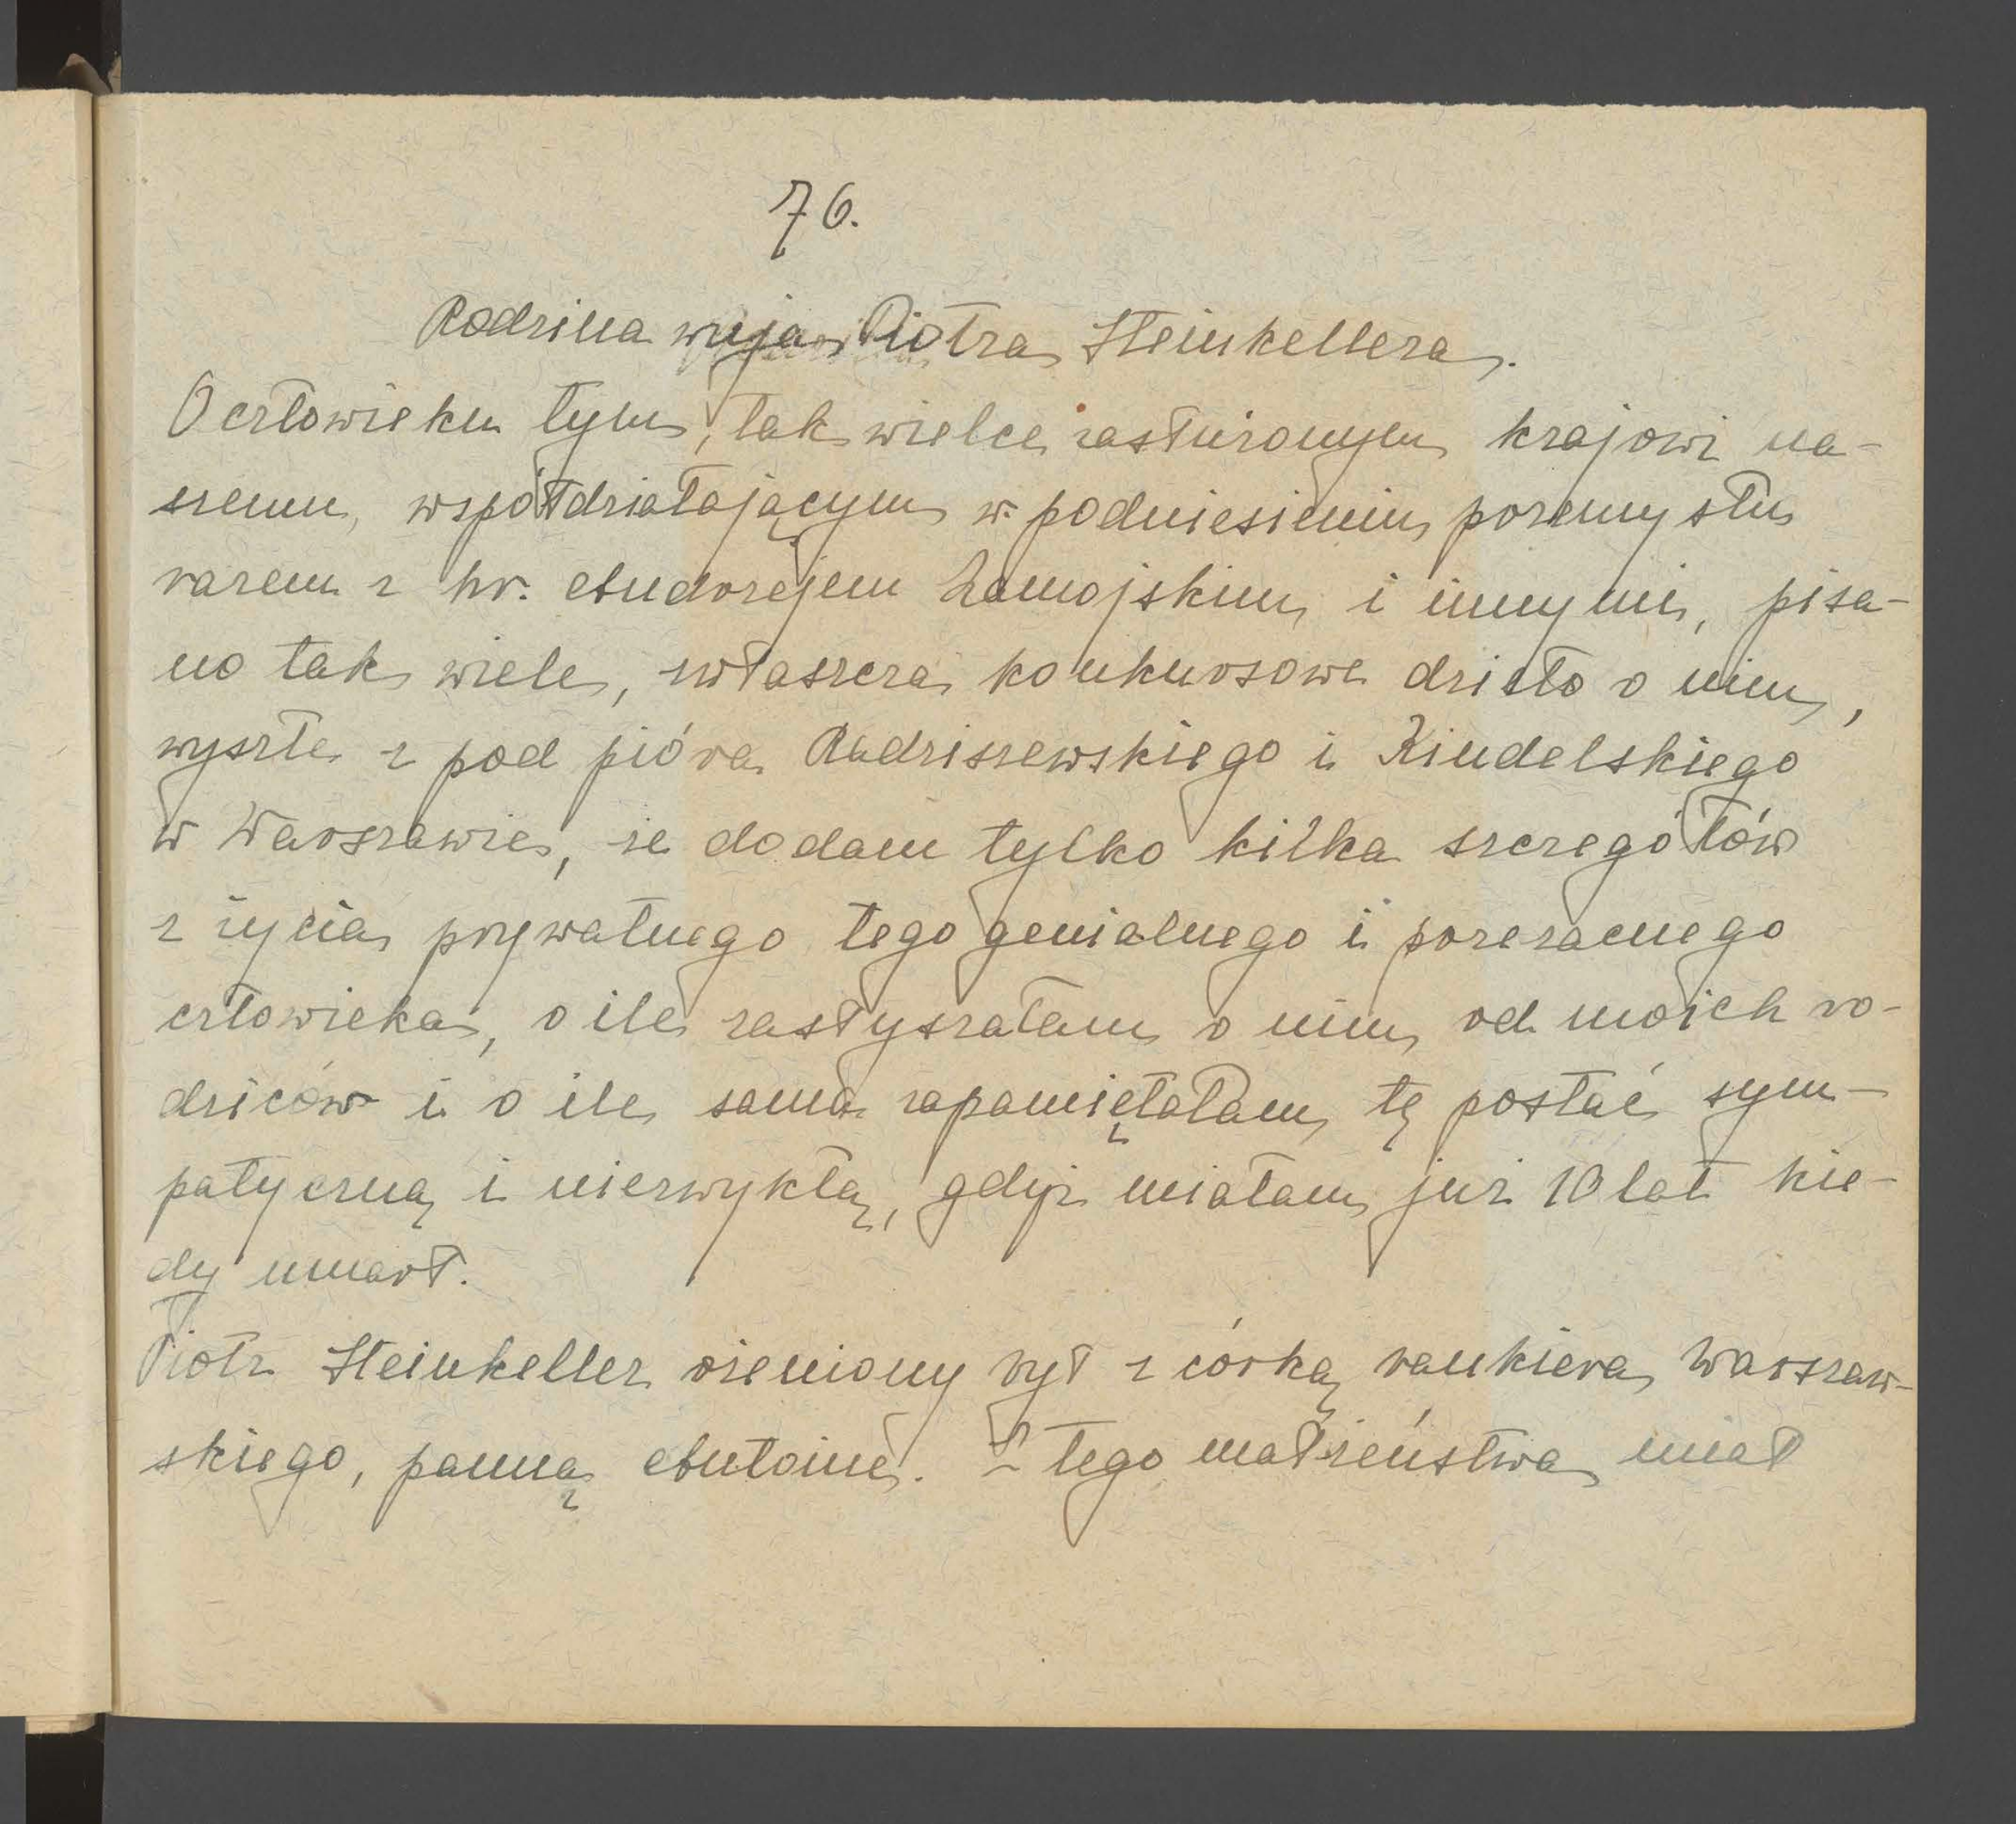 76.
Rodzina wuja Piotra Steinkellera.
O człowieku tym, tak wielce zasłużonym krajowi na-
szemu, współdziałającym w podniesieniu przemysłu
razem z hr. Andrzejem Zamojskim i innymi, pisa-
no tak wiele, zwłaszcza konkursowe dzieło o nim,
wyszłe z pod pióra Radziszewskiego i Kindelskiego
w Warszawie, że dodam tylko kilka szczegółów
z życia prywatnego tego genialnego i przezacnego
człowieka, o ile zasłyszałam o nim od moich ro-
dziców i o ile sama zapamiętałam tę postać sym-
patyczną i niezwykłą, gdyż miałam już 10 lat kie-
dy umarł.
Piotr Steinkeller ożeniony był z córką bankiera Warszaw-
skiego, panną Antoine. Z tego małżeństwa miał